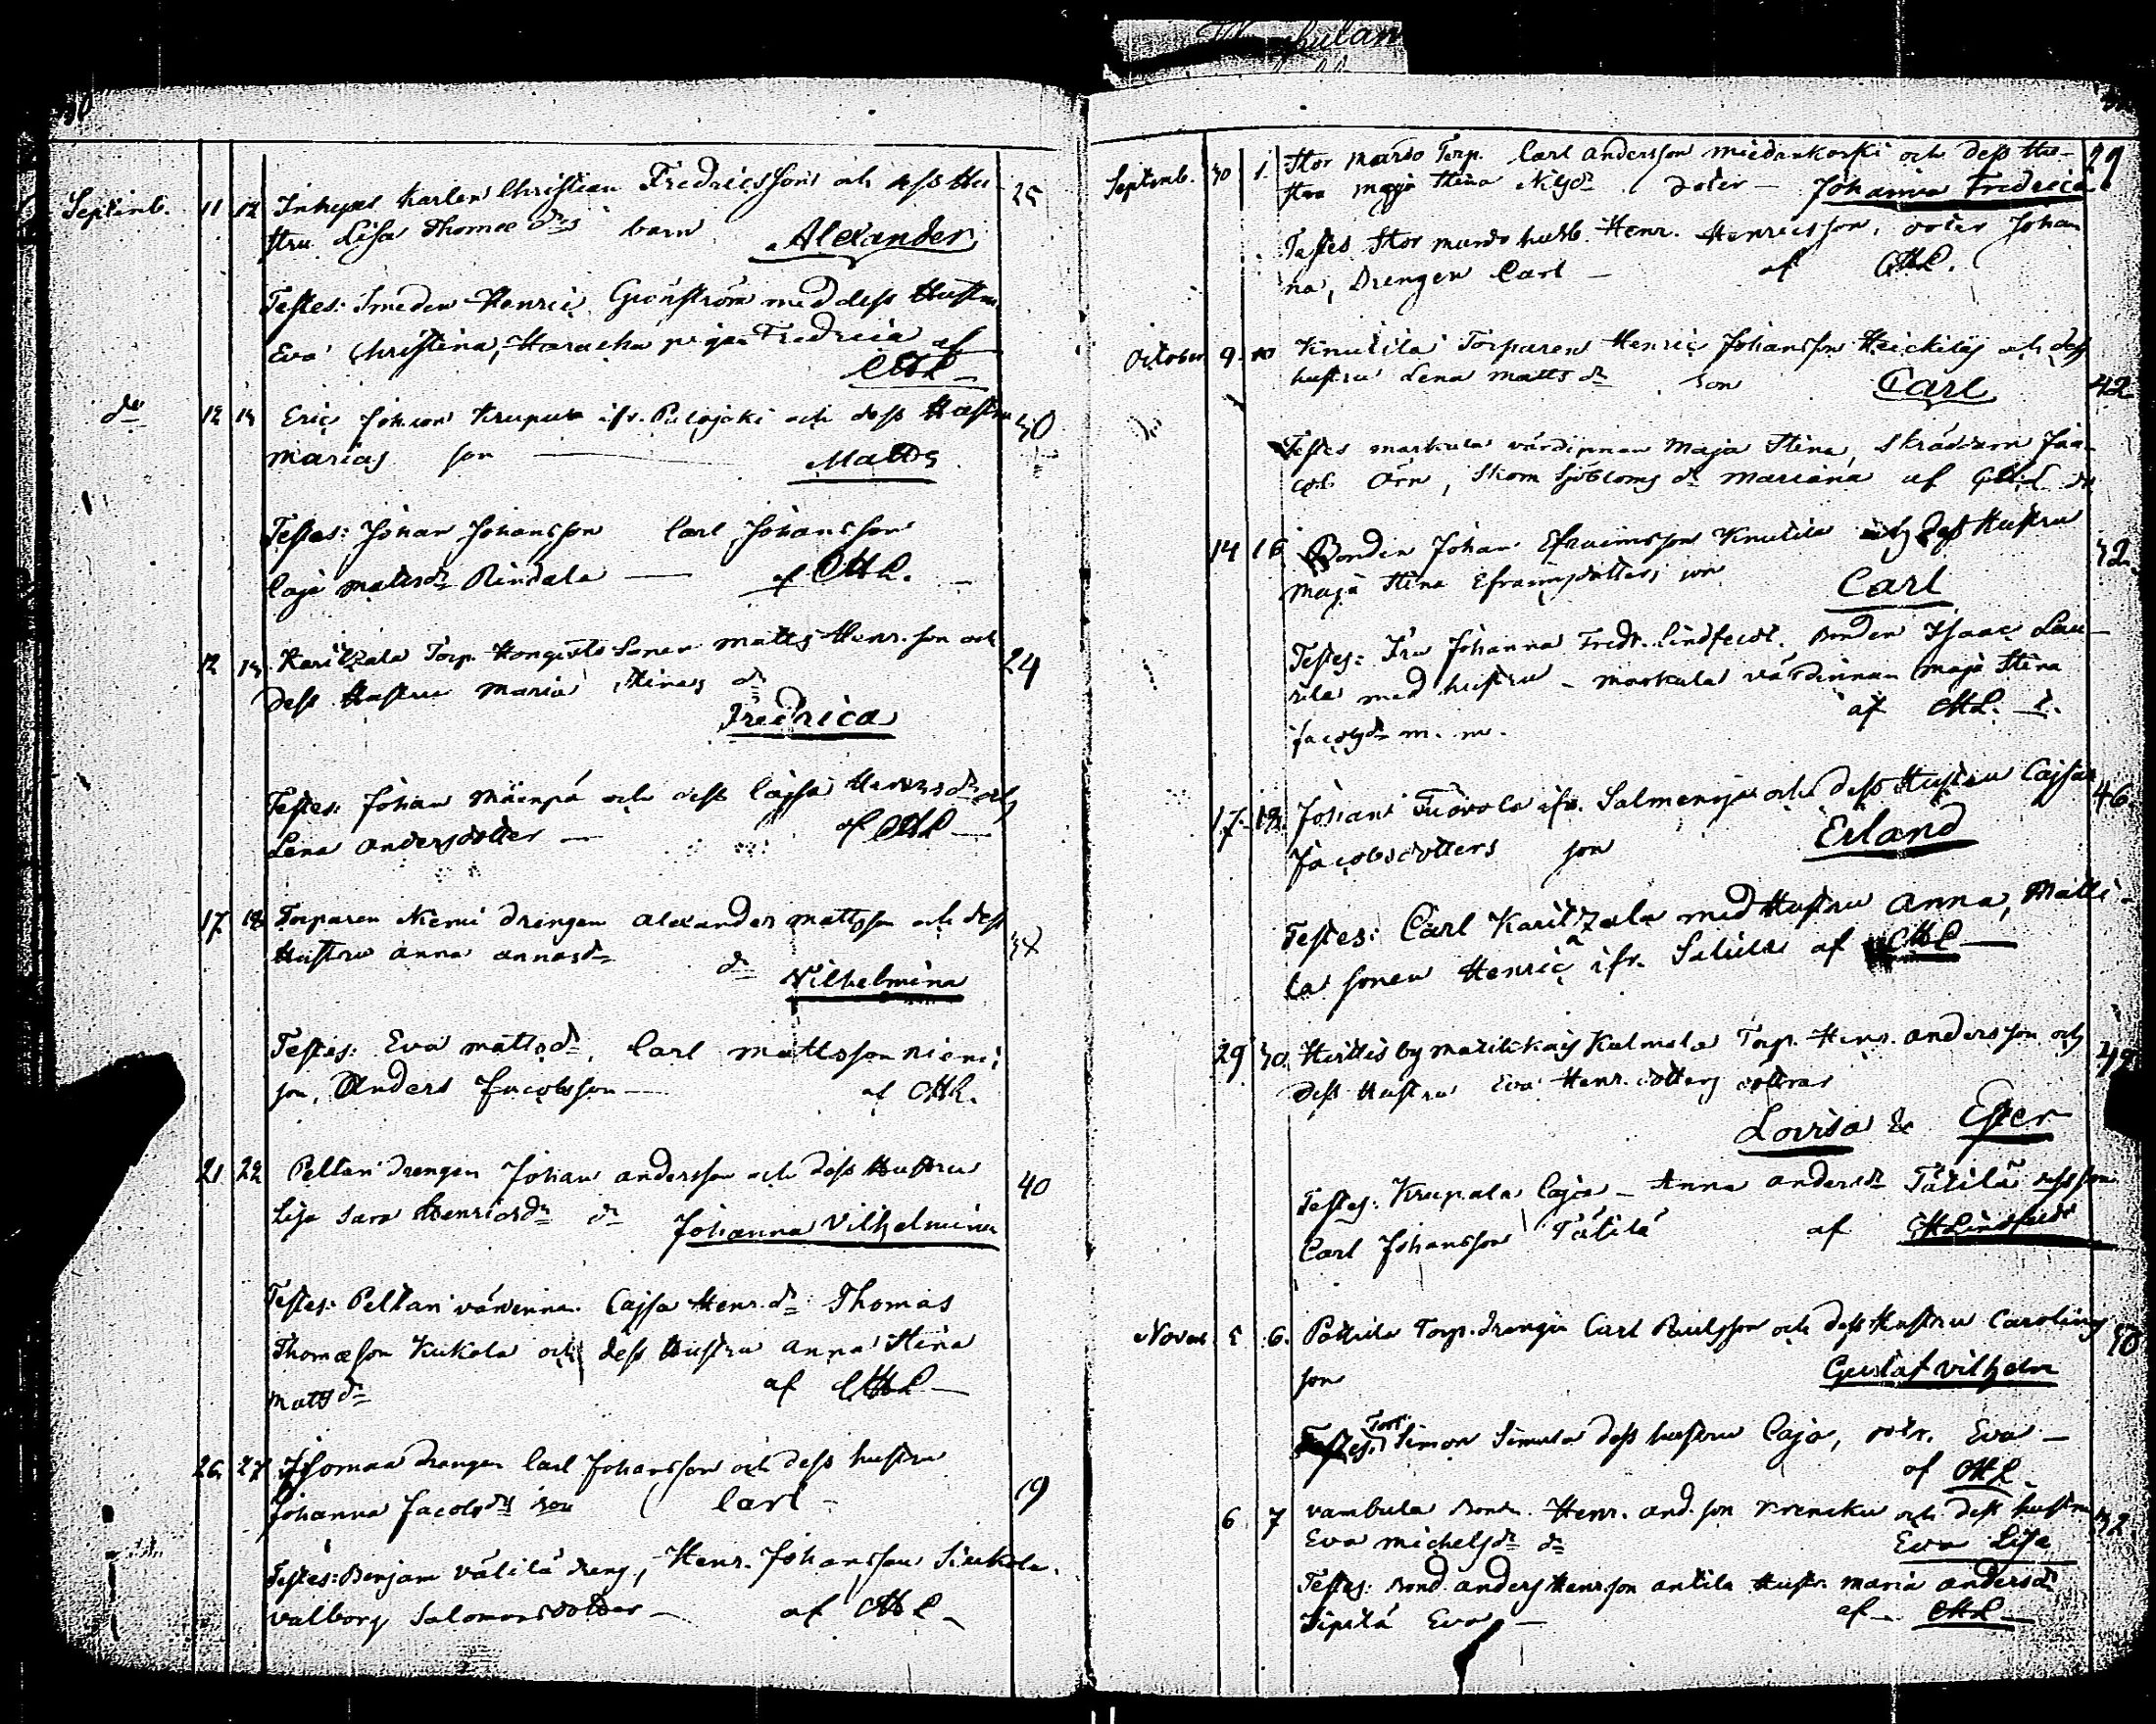 Septemb. 11 12 Inhyses karlen Christian Fredricsson och dess Hu- 25
stru Lisa Thomæ drs barn Alexander
Testes: Smeden Henric Grönström med dess Hustru
Eva Christina, pigan Fredrica af
CHL
do 12 13 Eric Johans Krupula ifr. Pulojoki och dess Hustru 30
Marias son Matts
Testes: Johan Johansson Carl Johansson
Caja Mattsdr Rindala af CHL.
12 13 Karitzala Torp. Hongisto Sonen Matts Henr. son och 24
dess Hustru Maria Stinas dr
Fredrica
Testes: Johan Mäenpä och dess Cajsa dr och
Lena Andersdotter af CHL
17 18 Torparen Niemi drengen Alexander Mattsson och dess
Hustru Anna dr
Vilhelmina
Testes: Eva Mattsdr, Carl Mattsson Niemi,
son, Anders Jacobsson af CHL.
21 22 Peltari drengen Johan Andersson och dess Hustru 40
Lisa Sara Henricsdr dr Johanna Vilhelmina
Testes: Peltari värdinna Cajsa Henr. dr Thomas
Thomæson Kukola och dess Hustru Anna Stina
Mattsdr af CHL
26 27 drengen Carl Johansson och dess hustru 19
Johanna Jacobsdrs son Carl
Testes: Benjam Välilä dreng, Henr. Johansson
Valborg Salomonsdotter af CHL
Septemb. 30 1. Stor Torp. Carl Andersson och dess Hu- 29
stru Maja Stina doter Johanna Fredrica
Testes Stor Henr. Henricsson, doter Johan
na, Drengen Carl af CHL.
October 9. 10 Knutila Torparen Henric Johansson Heickilä och dess
hustru Lena Matts dr son Carl 42
Testes Markula värdinnan Maja Stina, Skräddarn Jaa-
cob Örn, Skom Sjöbloms dr Mariana af
14 16 Bonden Johan Efraimsson Knutila och dess Hustru 32
Maja Stina Efraimsdotters son
Carl
Testes: Fru Johanna Fredr. Lindfeldt. Bonden Isaac Lau-
rila med hustru - Markula värdinnan Maja Stina
Jacobsdr m. m. af CHL.
17. 18. Johan Tuovola ifr. Salmenoja och dess Hustru Cajsa 46
Jacobsdotters son Erland
Testes: Carl Karitzala med Hustru Anna, Matti-
la sonen Henric ifr. af CHL
29 30. by Kulmala Torp. Henr. Andersson och
dess Hustru Eva Henr. dotters döttrar
Lovisa & Ester
Testes: Krupala Caja - Anna Andersdr Tätilä dess son
Carl Johansson Tätilä af CHLindfeldt
Novem. 5 6. Torp. drengen Carl Paulsson och dess Hustru Carolinas
son Gustaf Vilhelm
Testes: Torp. Simon Simula dess hustru Caja, dotr. Eva
af CHL
6 7 Vambula Bond. Henr. And. son och dess hustru 32
Eva Michelsdr dr Eva Lisa
Testes: Bond. Anders Henrson Antila Hustr. Maria Andersdr
Sipilä Eva af CHL